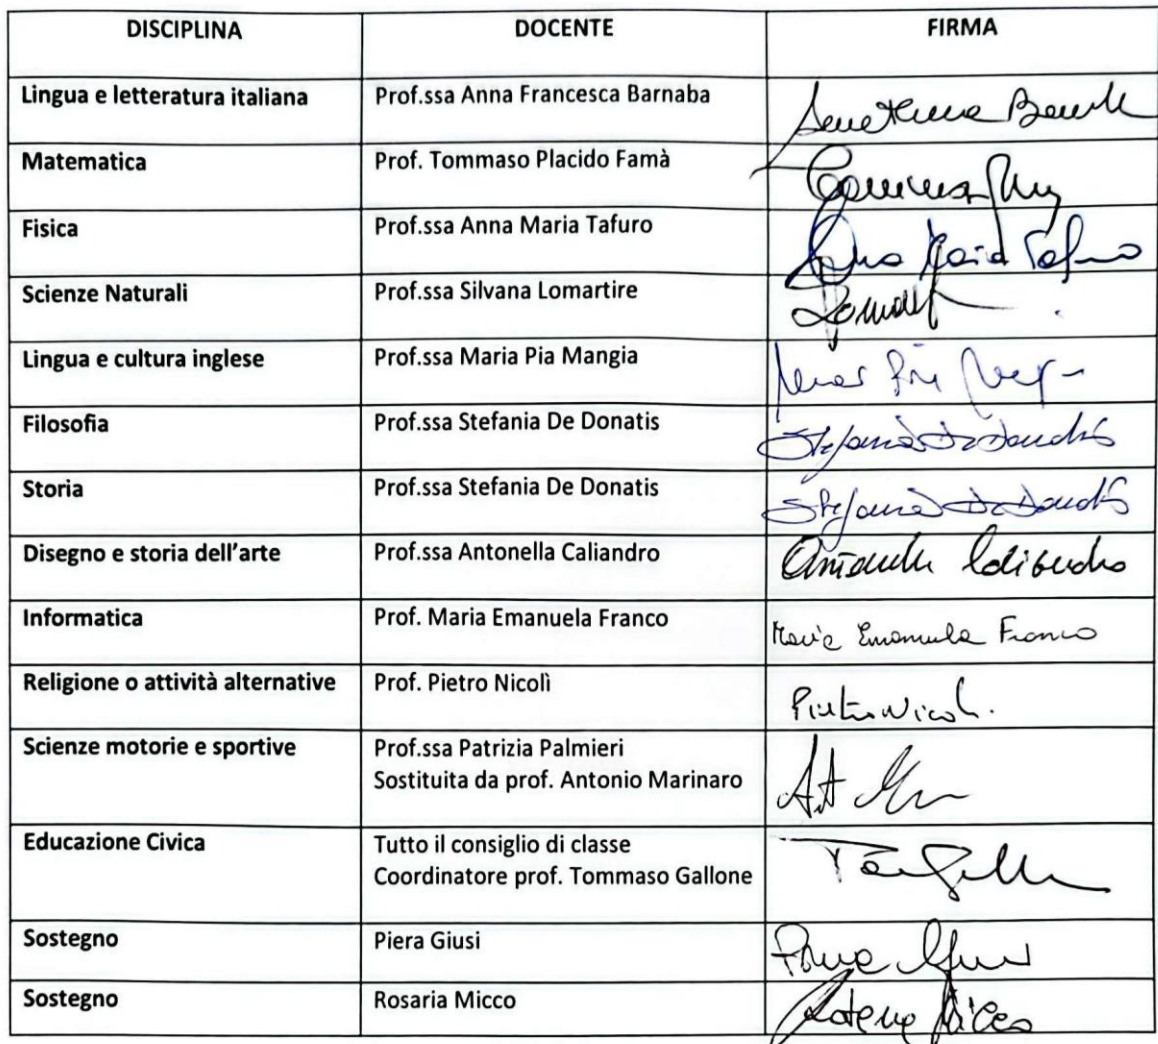 DISCIPLINA DOCENTE FIRMA
Lingua e letteratura italiana Prof.ssa Anna Francesca Barnaba
Matematica Prof. Tommaso Placido Famà
Fisica Prof.ssa Anna Maria Tafuro Anna Maria Tafuro
Scienze Naturali Prof.ssa Silvana Lomartire
Lingua e cultura inglese Prof.ssa Maria Pia Mangia
Filosofia Prof.ssa Stefania De Donatis Stefania De Donatis
Storia Prof.ssa Stefania De Donatis Stefania De Donatis
Disegno e storia dell'arte Prof.ssa Antonella Caliandro Antonella Caliandro
Informatica Prof. Maria Emanuela Franco Maria Emanuela Franco
Religione o attività alternative Prof. Pietro Nicolì Pietro Nicolì
Scienze motorie e sportive Prof.ssa Patrizia Palmieri
Sostituita da prof. Antonio Marinaro
Educazione Civica Tutto il consiglio di classe
Coordinatore prof. Tommaso Gallone
Sostegno Piera Giusi
Sostegno Rosaria Micco